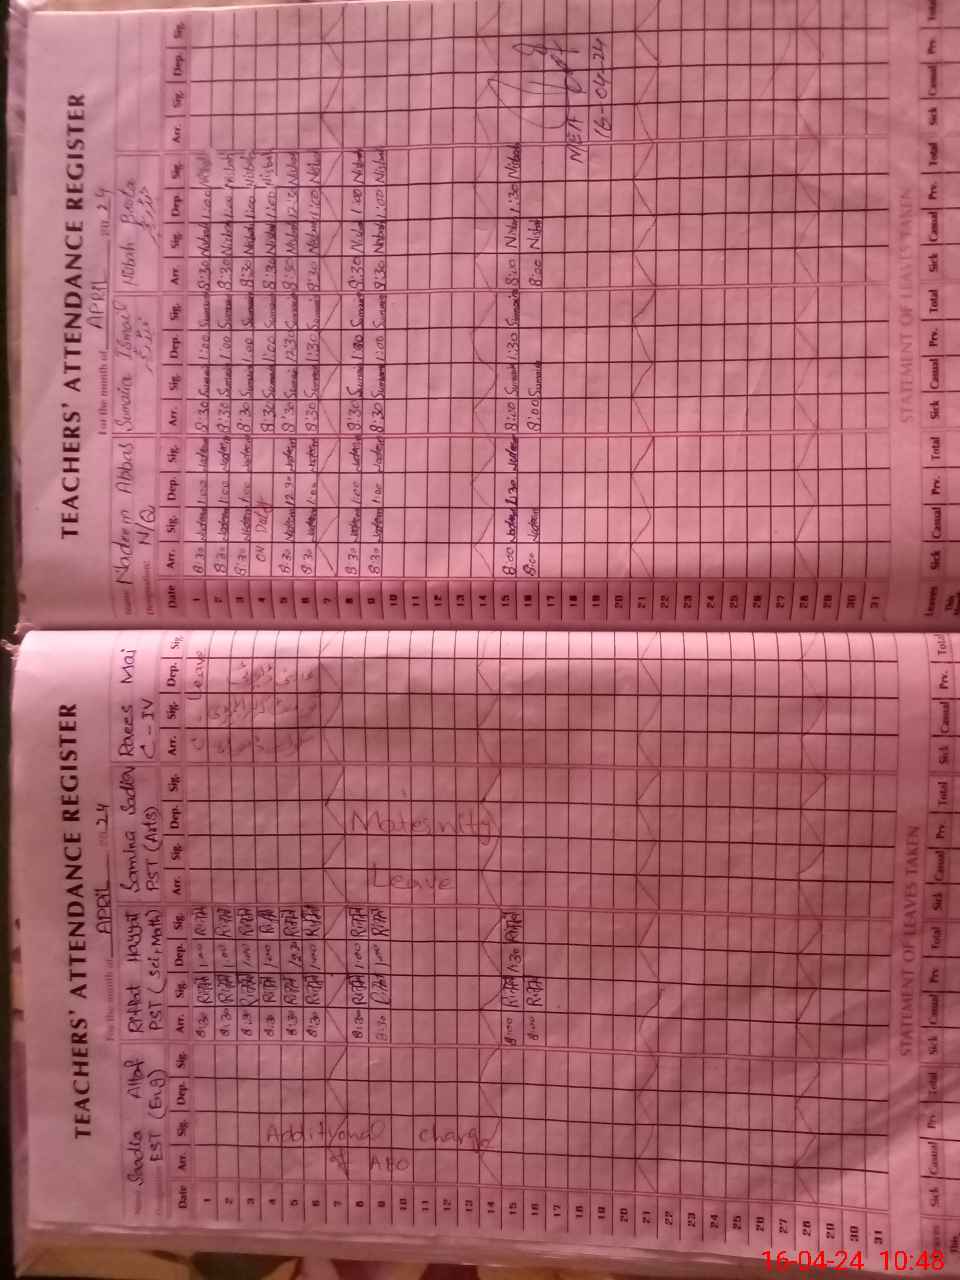 TEACHERS' ATTENDANCE REGISTER
For the month of APRIL 2024
Saadia Altaf
EST (Eng)
Riffat Hayyat
PST (Sci, Math)
Samina Sadiq
PST (Arts)
Raees Mai
C - IV
Date Arr. Sig. Dep. Sig. Arr. Sig. Dep. Sig. Arr. Sig. Dep. Sig. Arr. Sig. Dep. Sig.
1 8:30 Riffat 1:00 Riffat Leave
2 8:30 Riffat 1:00 Riffat
3 8:30 Riffat 1:00 Riffat
4 8:30 Riffat 1:00 Riffat
5 8:30 Riffat 12:30 Riffat
6 8:30 Riffat 1:00 Riffat
7
8 8:30 Riffat 1:00 Riffat
9 8:30 Riffat 1:00 Riffat
10
11
12
13
14
15 8:00 Riffat 1:30 Riffat
16 8:00 Riffat
17
18
19
20
21
22
23
24
25
26
27
28
29
30
31
Additional charge
of AEO
Maternity
Leave
STATEMENT OF LEAVES TAKEN
Sick Casual Prv. Total Sick Casual Prv. Total Sick Casual Prv. Total Sick Casual Prv. Total
TEACHERS' ATTENDANCE REGISTER
For the month of APRIL 2024
Name Nadeem Abbas
Designation: N/Q
Sumaira Ismail
Nisbah Batol
Date Arr. Sig. Dep. Sig. Arr. Sig. Dep. Sig. Arr. Sig. Dep. Sig. Arr. Sig. Dep. Sig.
1 8:30 Nadeem 1:00 Nadeem 8:30 Sumaira 1:00 Sumaira 8:30 Nisbah 1:00 Nisbah
2 8:30 Nadeem 1:00 Nadeem 8:30 Sumaira 1:00 Sumaira 8:30 Nisbah 1:00 Nisbah
3 8:30 Nadeem 1:00 Nadeem 8:30 Sumaira 1:00 Sumaira 8:30 Nisbah 1:00 Nisbah
4 ON Duty 8:30 Sumaira 1:00 Sumaira 8:30 Nisbah 1:00 Nisbah
5 8:30 Nadeem 12:30 Nadeem 8:30 Sumaira 12:30 Sumaira 8:30 Nisbah 12:30 Nisbah
6 8:30 Nadeem 1:00 Nadeem 8:30 Sumaira 1:30 Sumaira 8:30 Nisbah 1:00 Nisbah
7
8 8:30 Nadeem 1:00 Nadeem 8:30 Sumaira 1:00 Sumaira 8:30 Nisbah 1:00 Nisbah
9 8:30 Nadeem 1:00 Nadeem 8:30 Sumaira 1:00 Sumaira 8:30 Nisbah 1:00 Nisbah
10
11
12
13
14
15 8:00 Nadeem 1:30 Nadeem 8:00 Sumaira 1:30 Sumaira 8:00 Nisbah 1:30 Nisbah
16 8:00 Nadeem 8:00 Sumaira 8:00 Nisbah
17
18
19
20
21
22
23
24
25
26
27
28
29
30
31
MEA
16-04-24
STATEMENT OF LEAVES TAKEN
Leaves Sick Casual Prv. Total Sick Casual Prv. Total Sick Casual Prv. Total Sick Casual Prv. Total
This
16-04-24 10:48